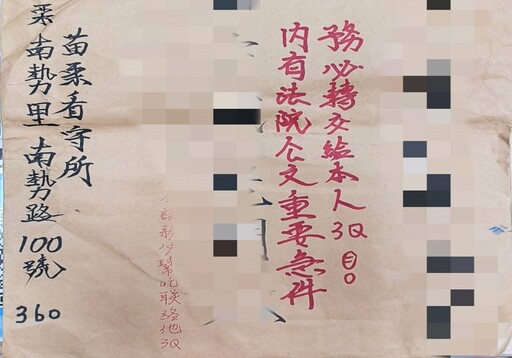 務必轉交給本人3Q 😊。
內有法院公文重要急件
幫忙联路他3Q
苗栗看守所
栗南勢里南勢路100號 360